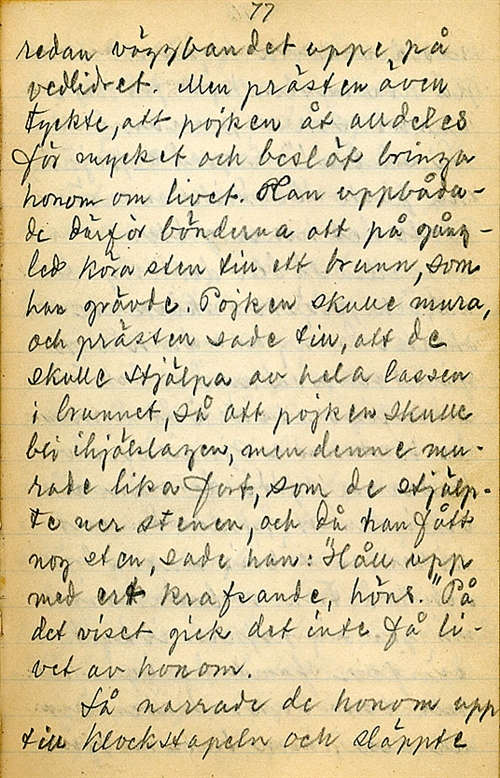 77
redan väggbandet uppe på
vedlidret. Men prästen även
tyckte, att pojken åt alldeles
för mycket och beslöt bringa
honom om livet. Han uppbåda-
de därför bönderna att på gång-
led köra sten till ett brunn, som
han grävde. Pojken skulle mura,
och prästen sade till, att de
skulle stjälpa av hela lassen
i brunnet, så att pojken skulle
bli ihjälslagen, men denne mu-
rade lika fort, som de stjälp-
te ner stenen, och då han fått
nog sten, sade han: "Håll upp
med ert krafsande, höns." På
det viset gick det inte få li-
vet av honom.
Så narrade de honom upp
till klockstapeln och släppte